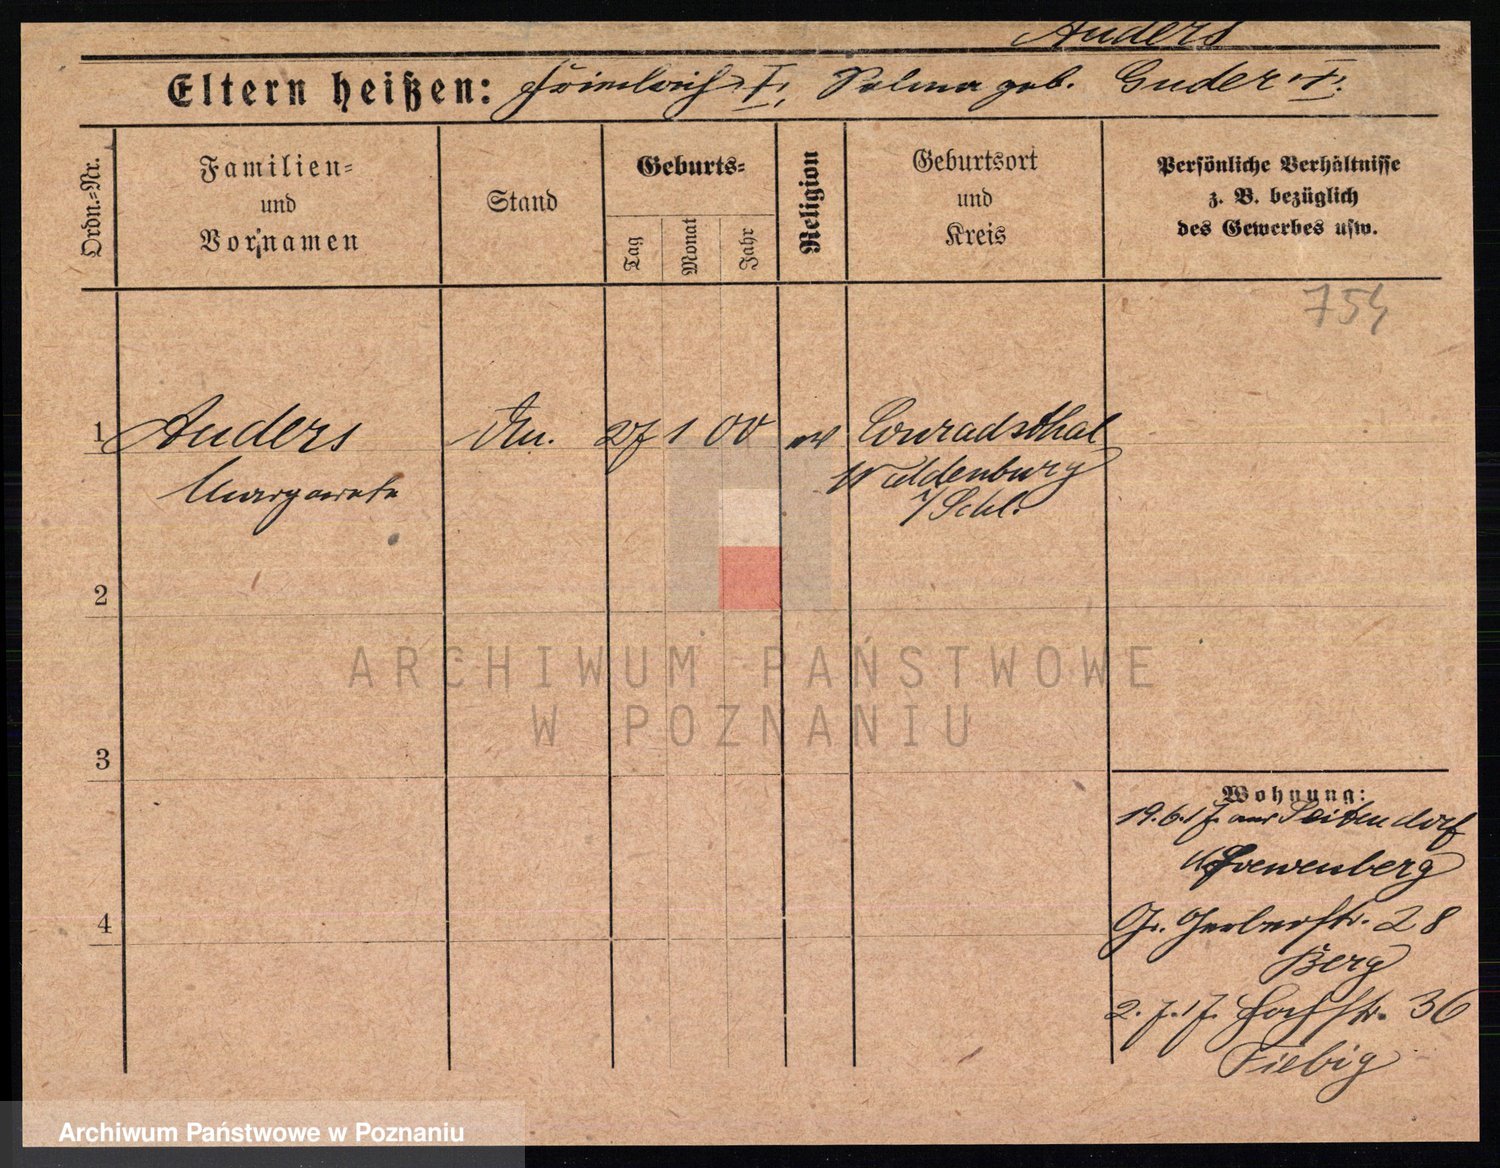 Anders
Eltern heißen: Friedrich †, Selma geb. Guder †.
Ordn.-Nr.
Familien-
und
Vornamen
Stand
Geburts-
Tag
Monat
Jahr
Religion
Geburtsort
und
Kreis
Persönliche Verhältnisse
z. B. bezüglich
des Gewerbes usw.
754
1 Anders 27 1 00 ev Conradsthal
Margarete Waldenburg
i/Schl.
2
3
4
Wohnung:
19.6.17. aus Seitendorf
Loewenberg
Gr. Gerberstr. 28
Berg
2.7.17. Hochstr. 36
Fiebig
ARCHIWUM PAŃSTWOWE
W POZNANIU
Archiwum Państwowe w Poznaniu